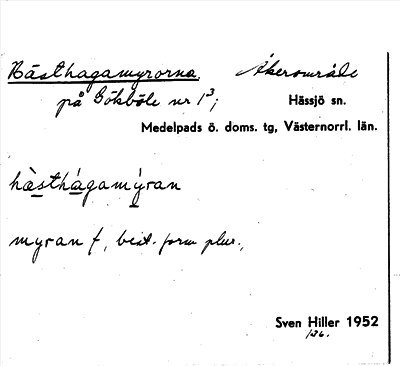 Hästhagamyrorna, Åkerområde
på Gökböle nr 1³;
Hässjö sn.
Medelpads ö. doms. tg, Västernorrl. län.
hàsthágamýran
myran f, best. form plur.,
Sven Hiller 1952